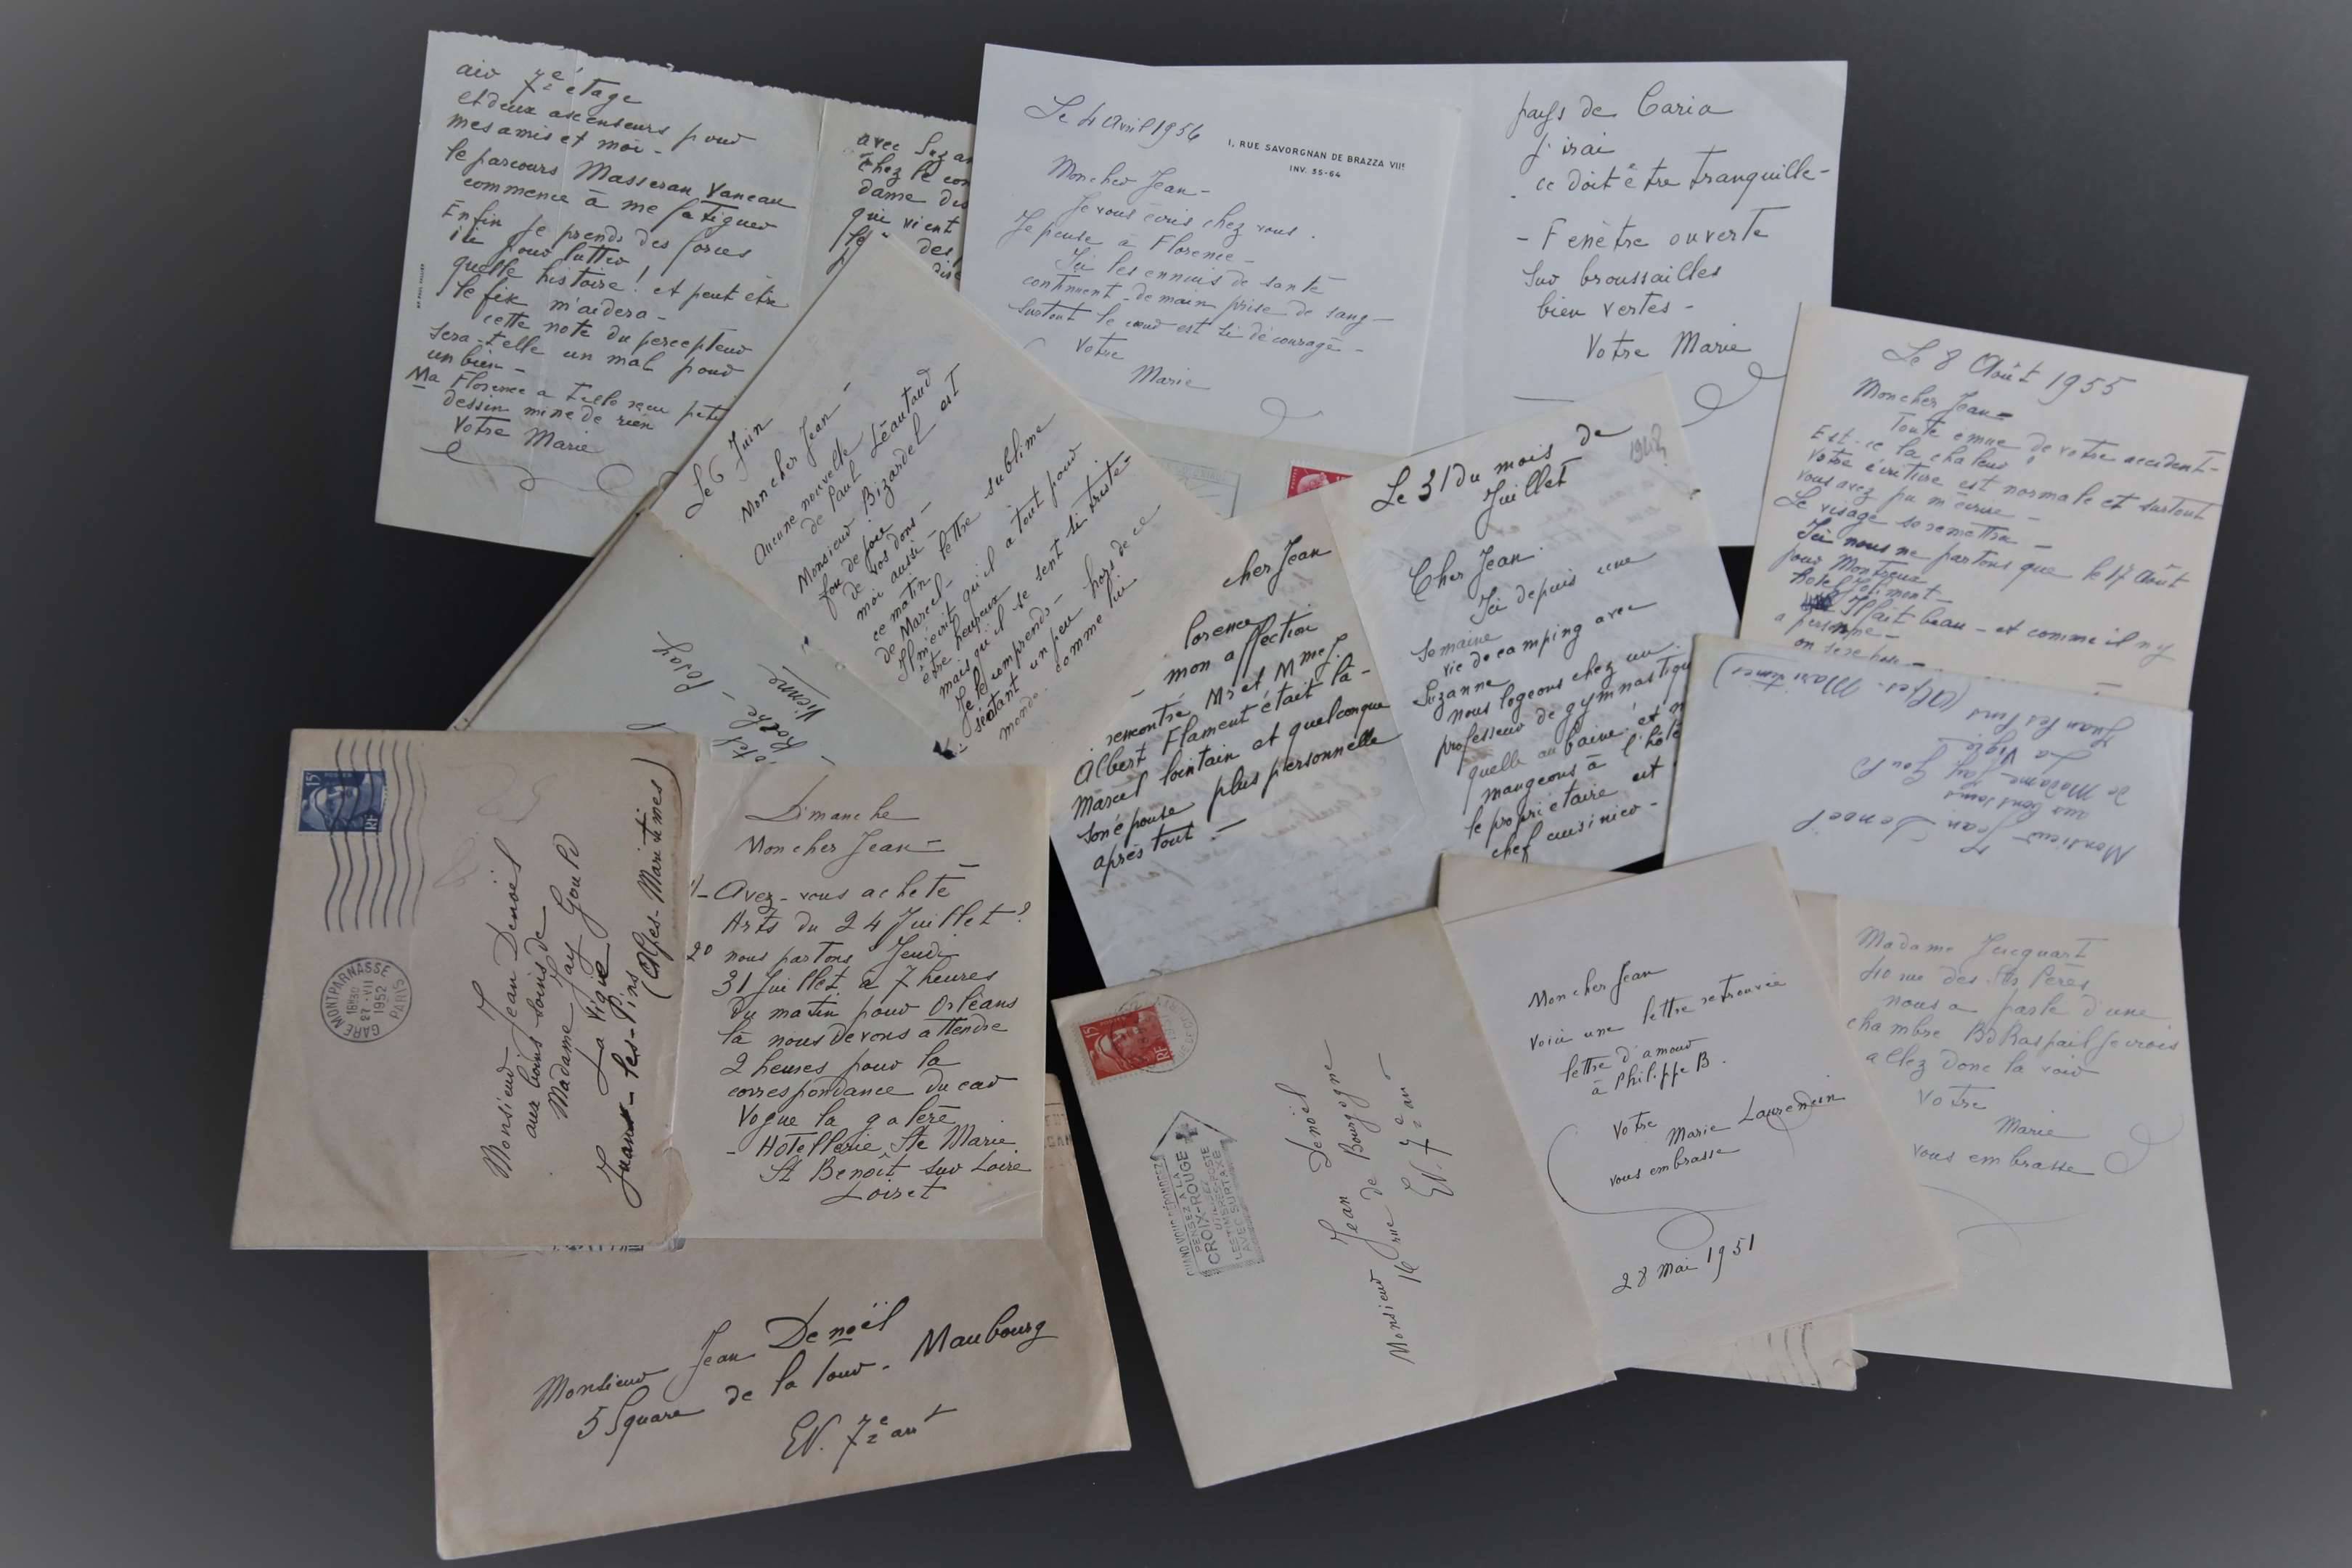 7e étage
et deux ascenseurs pour
mes amis et moi -
le parcours Masseran Vaneau
commence à me fatiguer
Enfin je prends des forces
ici pour lutter
quelle histoire! et peut être
le fisc m'aidera -
cette note du percepteur
sera-t-elle un mal pour
un bien -
Ma Florence a t-elle reçu petit
dessin mine de rien
Votre Marie
avec Suzan
chez le con
dame des
qui vient
le des
Le 4 Avril 1956
1, RUE SAVORGNAN DE BRAZZA VIIE
INV. 55-64
Mon cher Jean -
Je vous écris chez vous.
Je pense à Florence -
Ici les ennuis de santé
continuent - demain prise de sang -
Surtout le cœur est si découragé -
Votre
Marie
pays de Caria
j'irai
ce doit être tranquille -
- Fenêtre ouverte
sur broussailles
bien vertes -
Votre Marie
Le 8 Août 1955
Mon cher Jean -
Toute emue de votre accident -
Est-ce la chaleur?
Votre écriture est normale et surtout
vous avez pu m'écrire -
Le visage se remettra -
Ici nous ne partons que le 17 Août
pour Montreux
hotel
Il fait beau - et comme il n'y
a personne -
on se repose -
Le 6 Juin
Mon cher Jean -
Aucune nouvelle
de Paul Léautaud
Monsieur Bizardel est
fou de joie
de vos dons -
moi aussi -
ce matin lettre sublime
de Marcel -
Il m'écrit qu'il a tout pour
être heureux
mais qu'il se sent si triste -
Je le comprends -
sentant un peu hors de ce
monde comme lui
Hotel
Roche - Posay
Vienne
cher Jean
lorence
- mon affection
rencontré Mr et Mme J.
Albert Flament était là -
Marcel lointain et quelconque
son épouse plus personnelle
après tout -
Le 31 du mois de
Juillet
1948?
Cher Jean
Ici depuis une
semaine
vie de camping avec
Suzanne
nous logeons chez un
professeur de gymnastique
quelle aubaine! et n
mangeons à l'hôte
le propriétaire est
chef cuisinier -
Monsieur Jean Denoël
aux bons soins
de Madame Jay Gould
La Vigie
Juan les Pins
(Alpes - Maritimes)
15F
POSTES
RF
GARE MONTPARNASSE
18H30
27 - VII
1952
PARIS
Monsieur Jean Denoël
aux bons soins de
Madame Jay Gould
La Vigie
Juan - les - Pins
(Alpes - Maritimes)
Dimanche
Mon cher Jean -
1/ - Avez - vous acheté
Arts du 24 Juillet?
2° nous partons Jeudi
31 Juillet à 7 heures
du matin pour Orléans
là nous devons attendre
2 heures pour la
correspondance du car
Vogue la galère
- Hotellerie Ste Marie
St Benoît sur Loire
Loiret
Monsieur Jean Denoël
5 Square de la Tour - Maubourg
EV. 7e arrt
15F
RF
QUAND VOUS RÉPONDREZ
PENSEZ A LA
CROIX-ROUGE
UTILISEZ
LES TIMBRES-POSTE
AVEC SURTAXE
Monsieur Jean Denoël
14 rue de Bourgogne
EV. 7e arr
Mon cher Jean
Voici une lettre retrouvée
lettre d'amour
à Philippe B.
Votre
Marie Laurencin
vous embrasse
28 Mai 1951
Madame Jacquart
40 rue des Sts Pères
nous a parlé d'une
chambre Bd Raspail je crois
allez donc la voir
Votre
Marie
vous embrasse